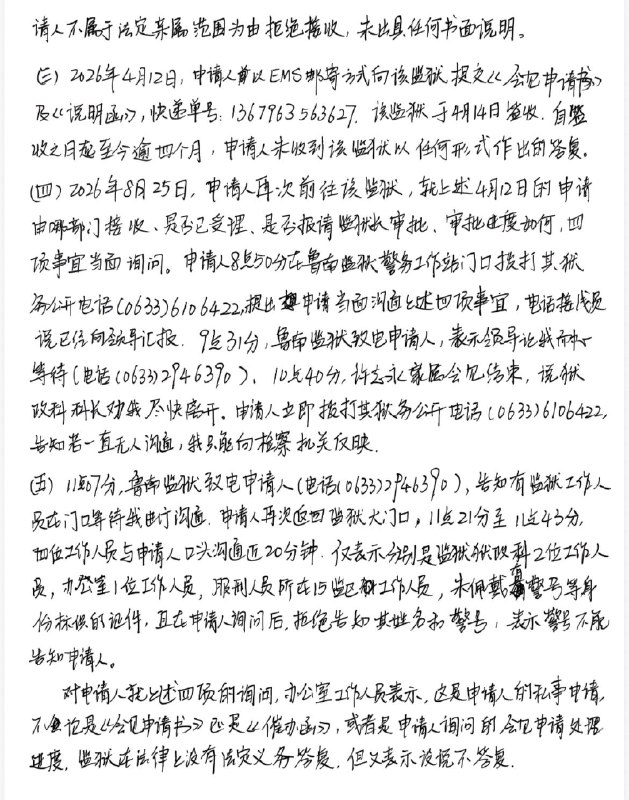 请人不属于法定亲属范围为由拒绝接收，未出具任何书面说明。
(三) 2026年4月12日，申请人前以EMS邮寄方式向该监狱提交《会见申请书》
及《说明函》，快递单号：1367963563627. 该监狱于4月14日签收. 自签
收之日起至今逾四个月，申请人未收到该监狱以任何形式作出的答复。
(四) 2026年8月25日，申请人再次前往该监狱，就上述4月12日的申请
由哪部门接收、是否已受理、是否报请监狱长审批、审批进度如何，四
项事宜当面询问。申请人8点50分在鲁南监狱警务工作站门口拨打其狱
务公开电话(0633)6106422，提出想申请当面沟通上述四项事宜，电话接线员
说已经向领导汇报. 9点31分，鲁南监狱致电申请人，表示领导让我耐心
等待(电话(0633)2946390). 10点40分，许志永家属会见结束，说狱
政科科长劝我尽快离开. 申请人立即拨打其狱务公开电话(0633)6106422，
告知若一直无人沟通，我只能向检察机关反映.
(五) 11点07分，鲁南监狱致电申请人(电话(0633)2946390)，告知有监狱工作人
员在门口等待我进行沟通. 申请人再次返回监狱大门口，11点21分至11点43分，
四位工作人员与申请人口头沟通近20分钟. 仅表示分别是监狱狱政科2位工作人
员，办公室1位工作人员，服刑人员所在15监区工作人员，未佩戴有警号等身
份标识的证件，且在申请人询问后，拒绝告知其姓名和警号，表示警号不能
告知申请人。
对申请人就上述四项的询问，办公室工作人员表示，这是申请人的私事申请，
不管是《会见申请书》还是《催办函》，或者是申请人询问的会见申请处理
进度，监狱在法律上没有法定义务答复. 但又表示没说不答复.